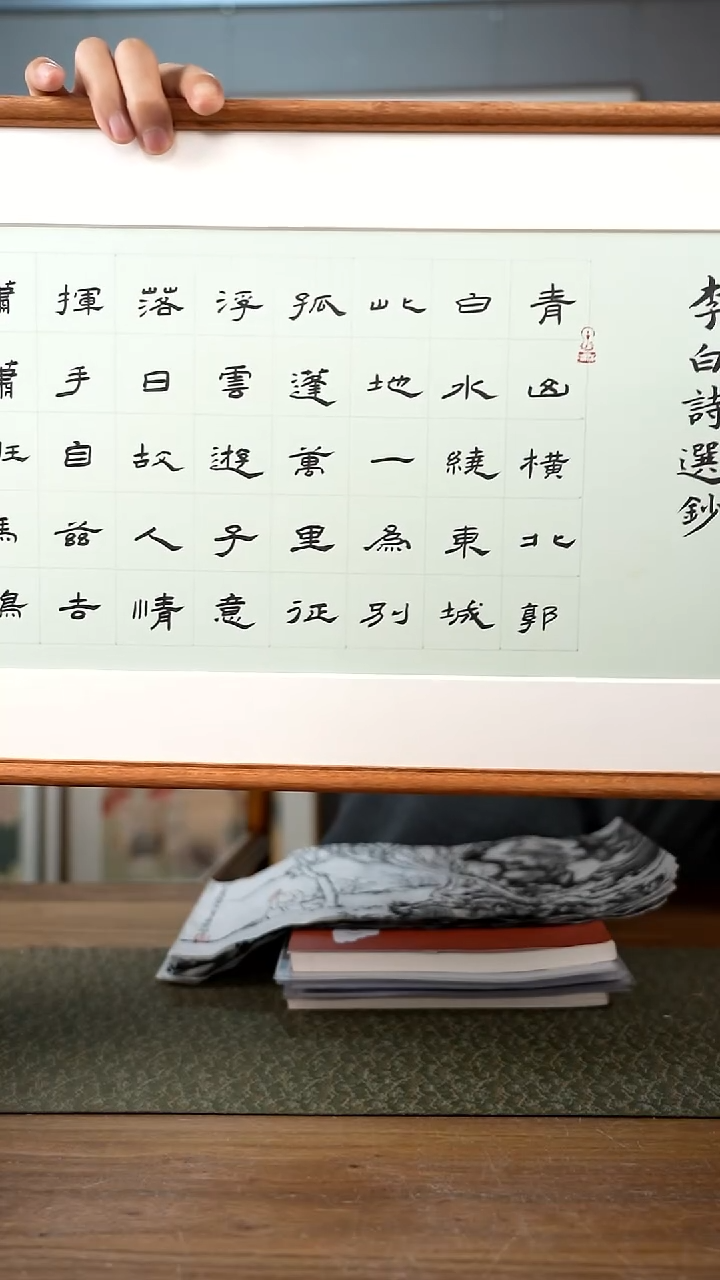 李白詩選鈔
青山橫北郭
白水繞東城
此地一為別
孤蓬萬里征
浮雲遊子意
落日故人情
揮手自茲去
蕭蕭班馬鳴